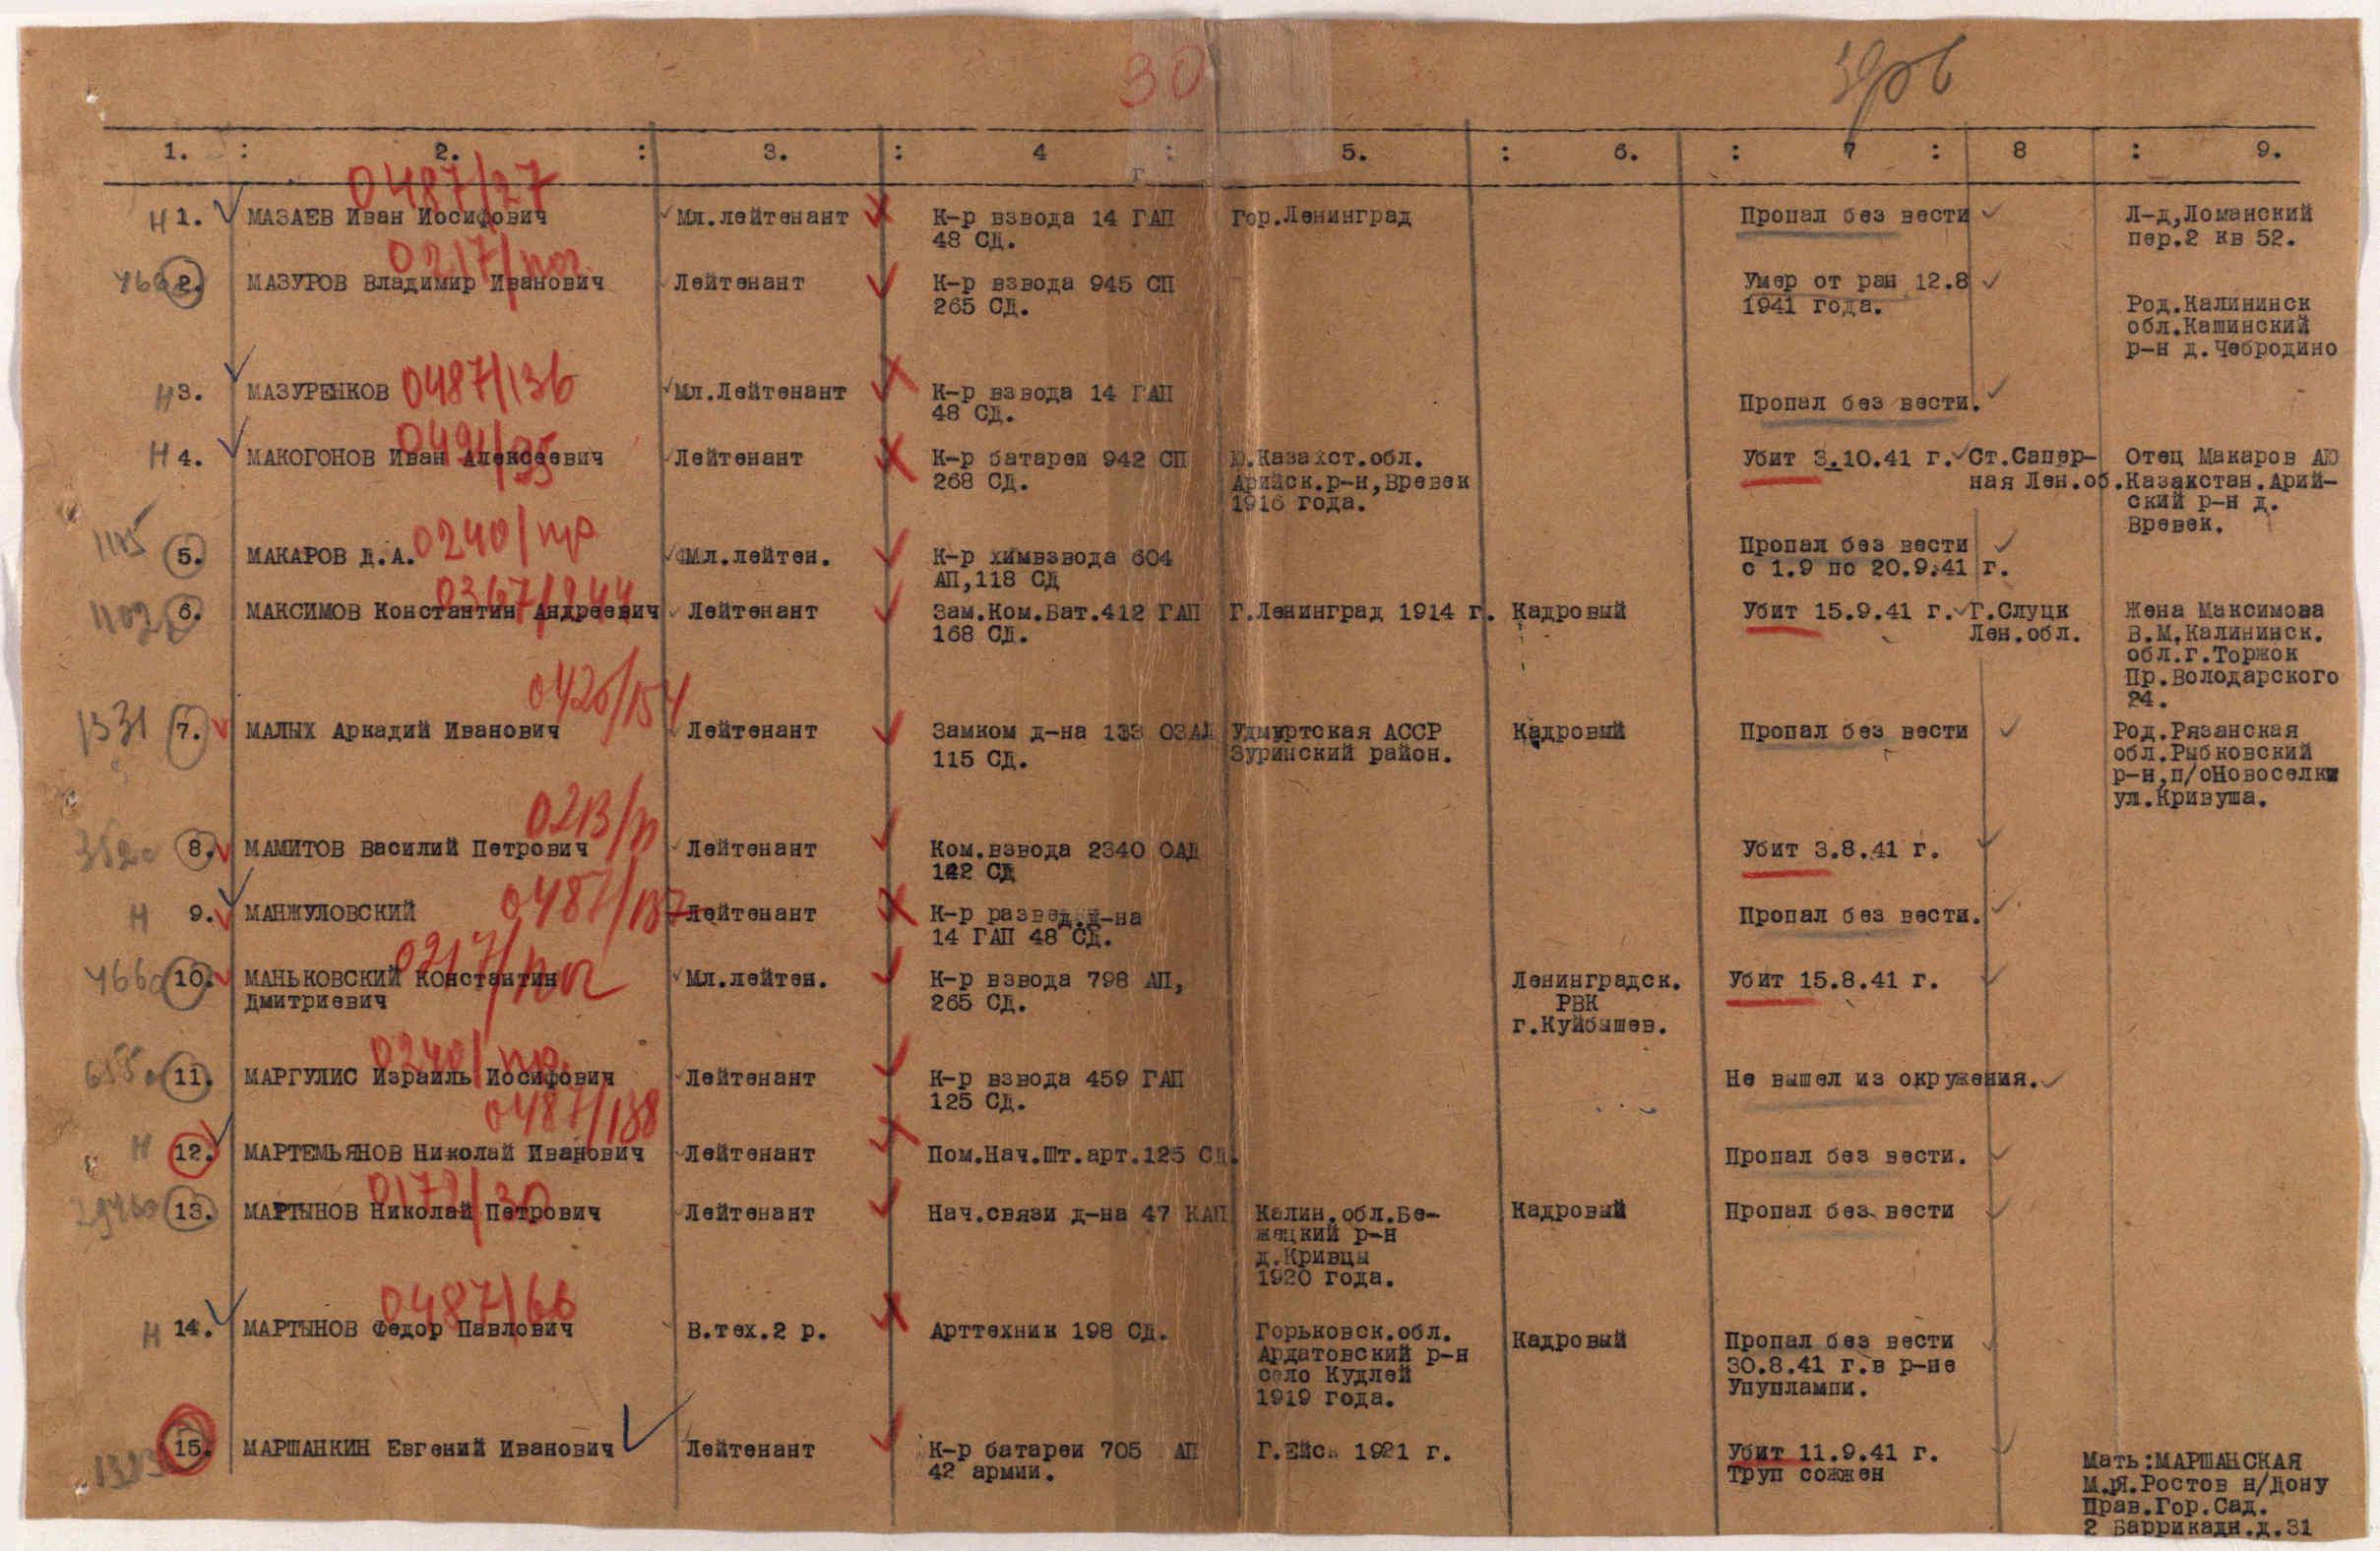 30
1. : 2. : 3. : 4 : 5. : 6. : 7 : 8 : 9.
0487/27
Н 1. МАЗАЕВ Иван Иосифович Мл.лейтенант К-р взвода 14 ГАП Гор.Ленинград Пропал без вести Л-д,Ломанский
48 СД. пер.2 кв 52.
0217/
2. МАЗУРОВ Владимир Иванович Лейтенант К-р взвода 945 СП Умер от ран 12.8
265 СД. 1941 года. Род.Калининск
обл.Кашинский
р-н д.Чебродино
Н 3. МАЗУРЕНКОВ 0487/136 Мл.Лейтенант К-р взвода 14 ГАП Пропал без вести.
48 СД.
0491/35
Н 4. МАКОГОНОВ Иван Алексеевич Лейтенант К-р батареи 942 СП Ю.Казахст.обл. Убит 3.10.41 г. Ст.Сапер- Отец Макаров АЮ
268 СД. Арийск.р-н,Вревек ная Лен.об.Казакстан.Арий-
1916 года. ский р-н д.
Вревек.
5. МАКАРОВ Д.А. 0240/пр Мл.лейтен. К-р химвзвода 604 Пропал без вести
АП,118 СД с 1.9 по 20.9.41 г.
0367/244
6. МАКСИМОВ Константин Андреевич Лейтенант Зам.Ком.Бат.412 ГАП Г.Ленинград 1914 г. Кадровый Убит 15.9.41 г. Г.Слуцк Жена Максимова
168 СД. Лен.обл. В.М.Калининск.
обл.г.Торжок
Пр.Володарского
24.
0426/154
1331 7. МАЛЫХ Аркадий Иванович Лейтенант Замком д-на 133 ОЗАД Удмуртская АССР Кадровый Пропал без вести Род.Рязанская
115 СД. Зуринский район. обл.Рыбковский
р-н,п/оНовоселки
ул.Кривуша.
0213/п
8. МАМИТОВ Василий Петрович Лейтенант Ком.взвода 2340 ОАД Убит 3.8.41 г.
142 СД
0487/137
Н 9. МАНЖУЛОВСКИЙ Лейтенант К-р развед.д-на Пропал без вести.
14 ГАП 48 СД.
0217/
10. МАНЬКОВСКИЙ Константин Мл.лейтен. К-р взвода 798 АП, Ленинградск. Убит 15.8.41 г.
Дмитриевич 265 СД. РВК
г.Куйбышев.
0240/пр.
11. МАРГУЛИС Израиль Иосифович Лейтенант К-р взвода 459 ГАП Не вышел из окружения.
125 СД.
0487/138
Н 12. МАРТЕМЬЯНОВ Николай Иванович Лейтенант Пом.Нач.Шт.арт.125 СД. Пропал без вести.
0172/30
13. МАРТЫНОВ Николай Петрович Лейтенант Нач.связи д-на 47 КАП Калин.обл.Бе- Кадровый Пропал без вести
жецкий р-н
д.Кривцы
1920 года.
0487/66
Н 14. МАРТЫНОВ Федор Павлович В.тех.2 р. Арттехник 198 СД. Горьковск.обл. Кадровый Пропал без вести
Ардатовский р-н 30.8.41 г.в р-не
село Кудлей Упуплампи.
1919 года.
15. МАРШАНКИН Евгений Иванович Лейтенант К-р батареи 705 АП Г.Ейск 1921 г. Убит 11.9.41 г. Мать:МАРШАНСКАЯ
42 армии. Труп сожжен М.Я.Ростов н/Дону
Прав.Гор.Сад.
2 Баррикадн.д.31